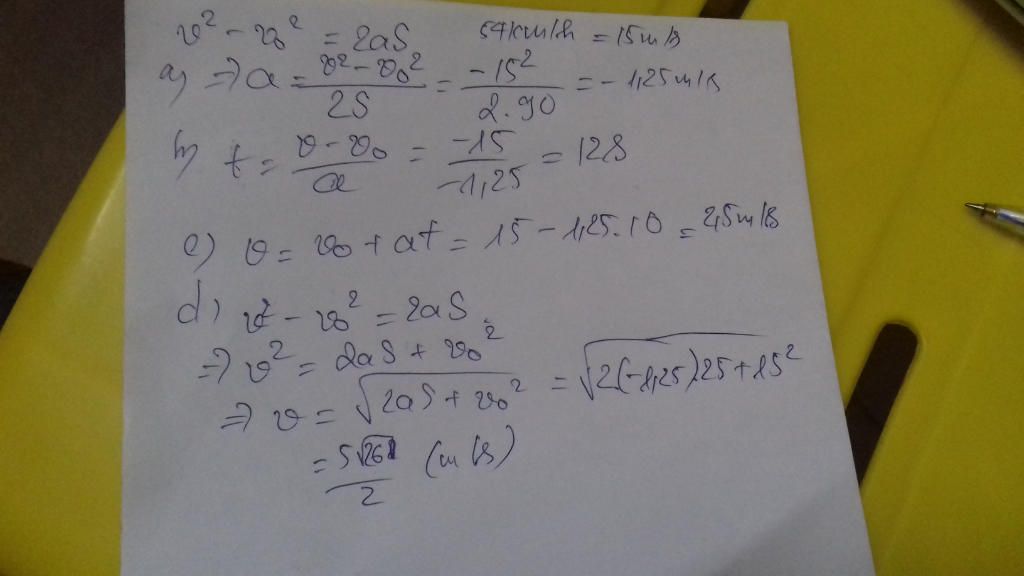 v² - v₀² = 2aS 54km/h = 15m/s
a) => a = (v² - v₀²)/(2S) = (-15²)/(2.90) = - 1,25m/s
b) t = (v - v₀)/a = (-15)/(-1,25) = 12s
c) v = v₀ + at = 15 - 1,25.10 = 2,5m/s
d) v² - v₀² = 2aS
=> v² = 2aS + v₀²
=> v = √(2aS + v₀²) = √(2(-1,25).25 + 15²)
= (5√26)/2 (m/s)